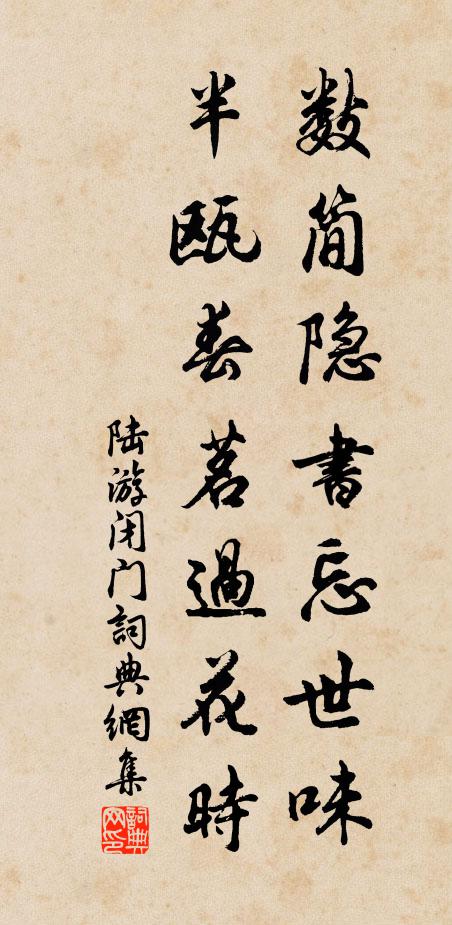 数简隐書忘世味
半瓯春茗過花時
陆游闭门詞典網集
詞典网印